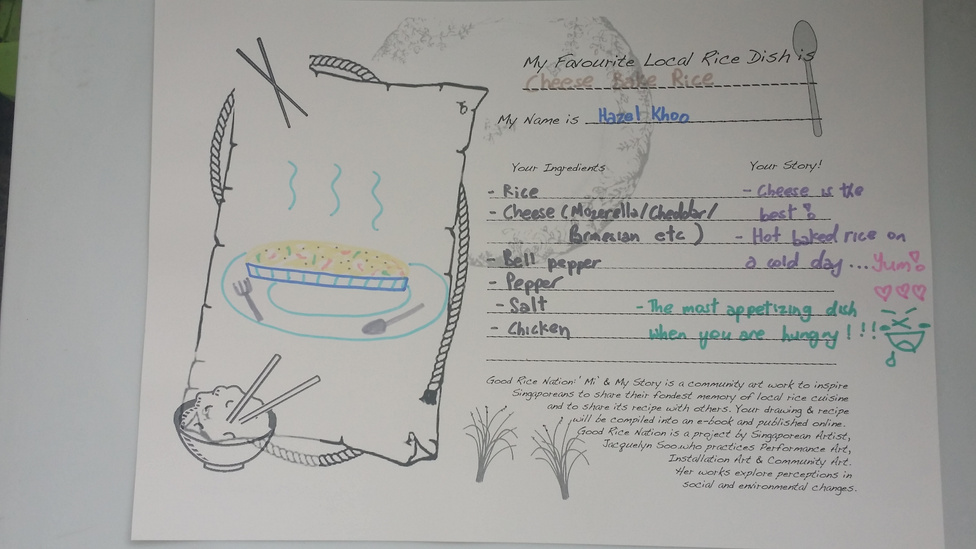 My Favourite Local Rice Dish is
Cheese Bake Rice
My Name is Hazel Khoo
Your Ingredients
- Rice
- Cheese (Mozerella/Cheddar/
Parmesian etc)
- Bell pepper
- Pepper
- Salt
- Chicken
Your Story!
- Cheese is the
best!
- Hot baked rice on
a cold day... Yum!
- The most appetizing dish
when you are hungry!!!
Good Rice Nation:' Mi' & My Story is a community art work to inspire
Singaporeans to share their fondest memory of local rice cuisine
and to share its recipe with others. Your drawing & recipe
will be compiled into an e-book and published online.
Good Rice Nation is a project by Singaporean Artist,
Jacquelyn Soo.who practices Performance Art,
Installation Art & Community Art.
Her works explore perceptions in
social and environmental changes.